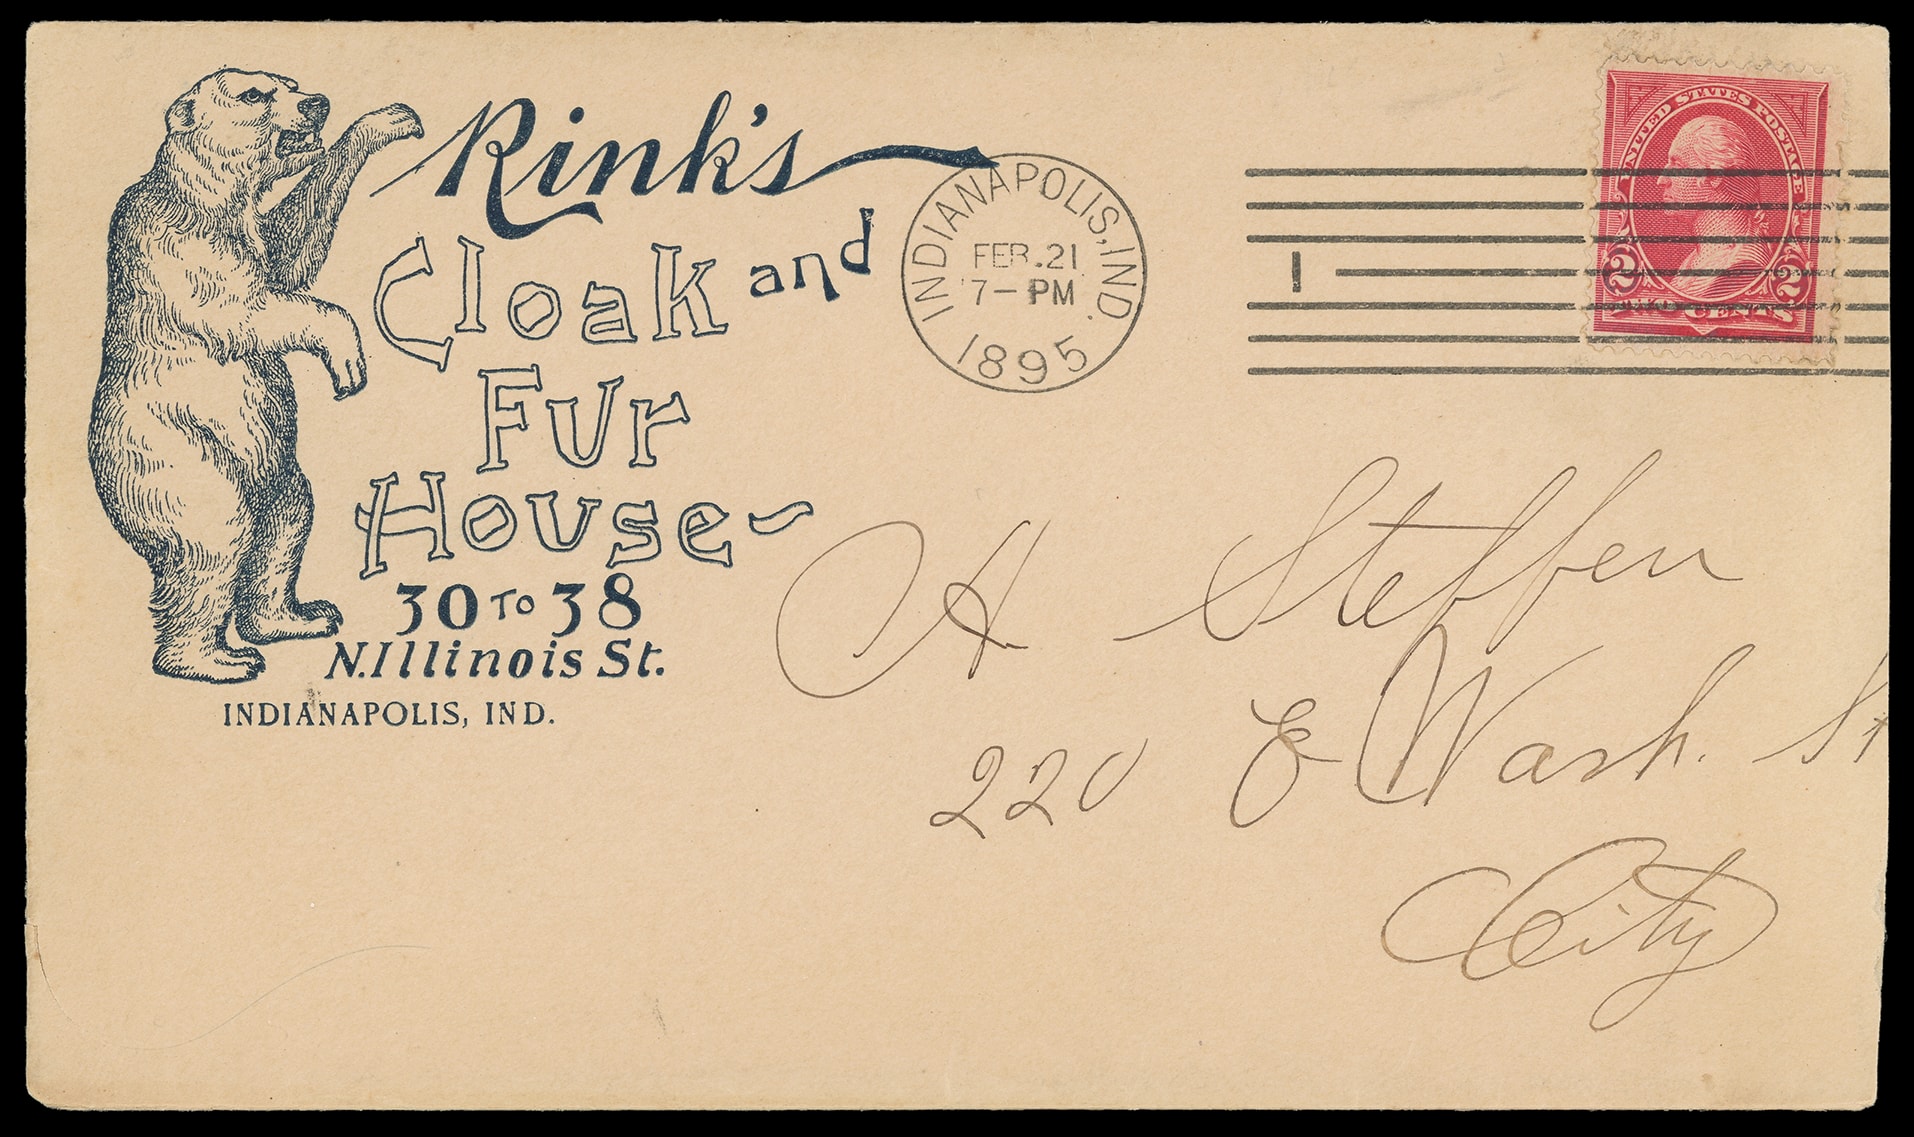 Rink's
Cloak and
Fur
House
30 TO 38
N. Illinois St.
INDIANAPOLIS, IND.
INDIANAPOLIS, IND.
FEB. 21
7 - PM
1895
1
UNITED STATES POSTAGE
2 2
TWO CENTS
H Steffen
220 E Wash. St
City